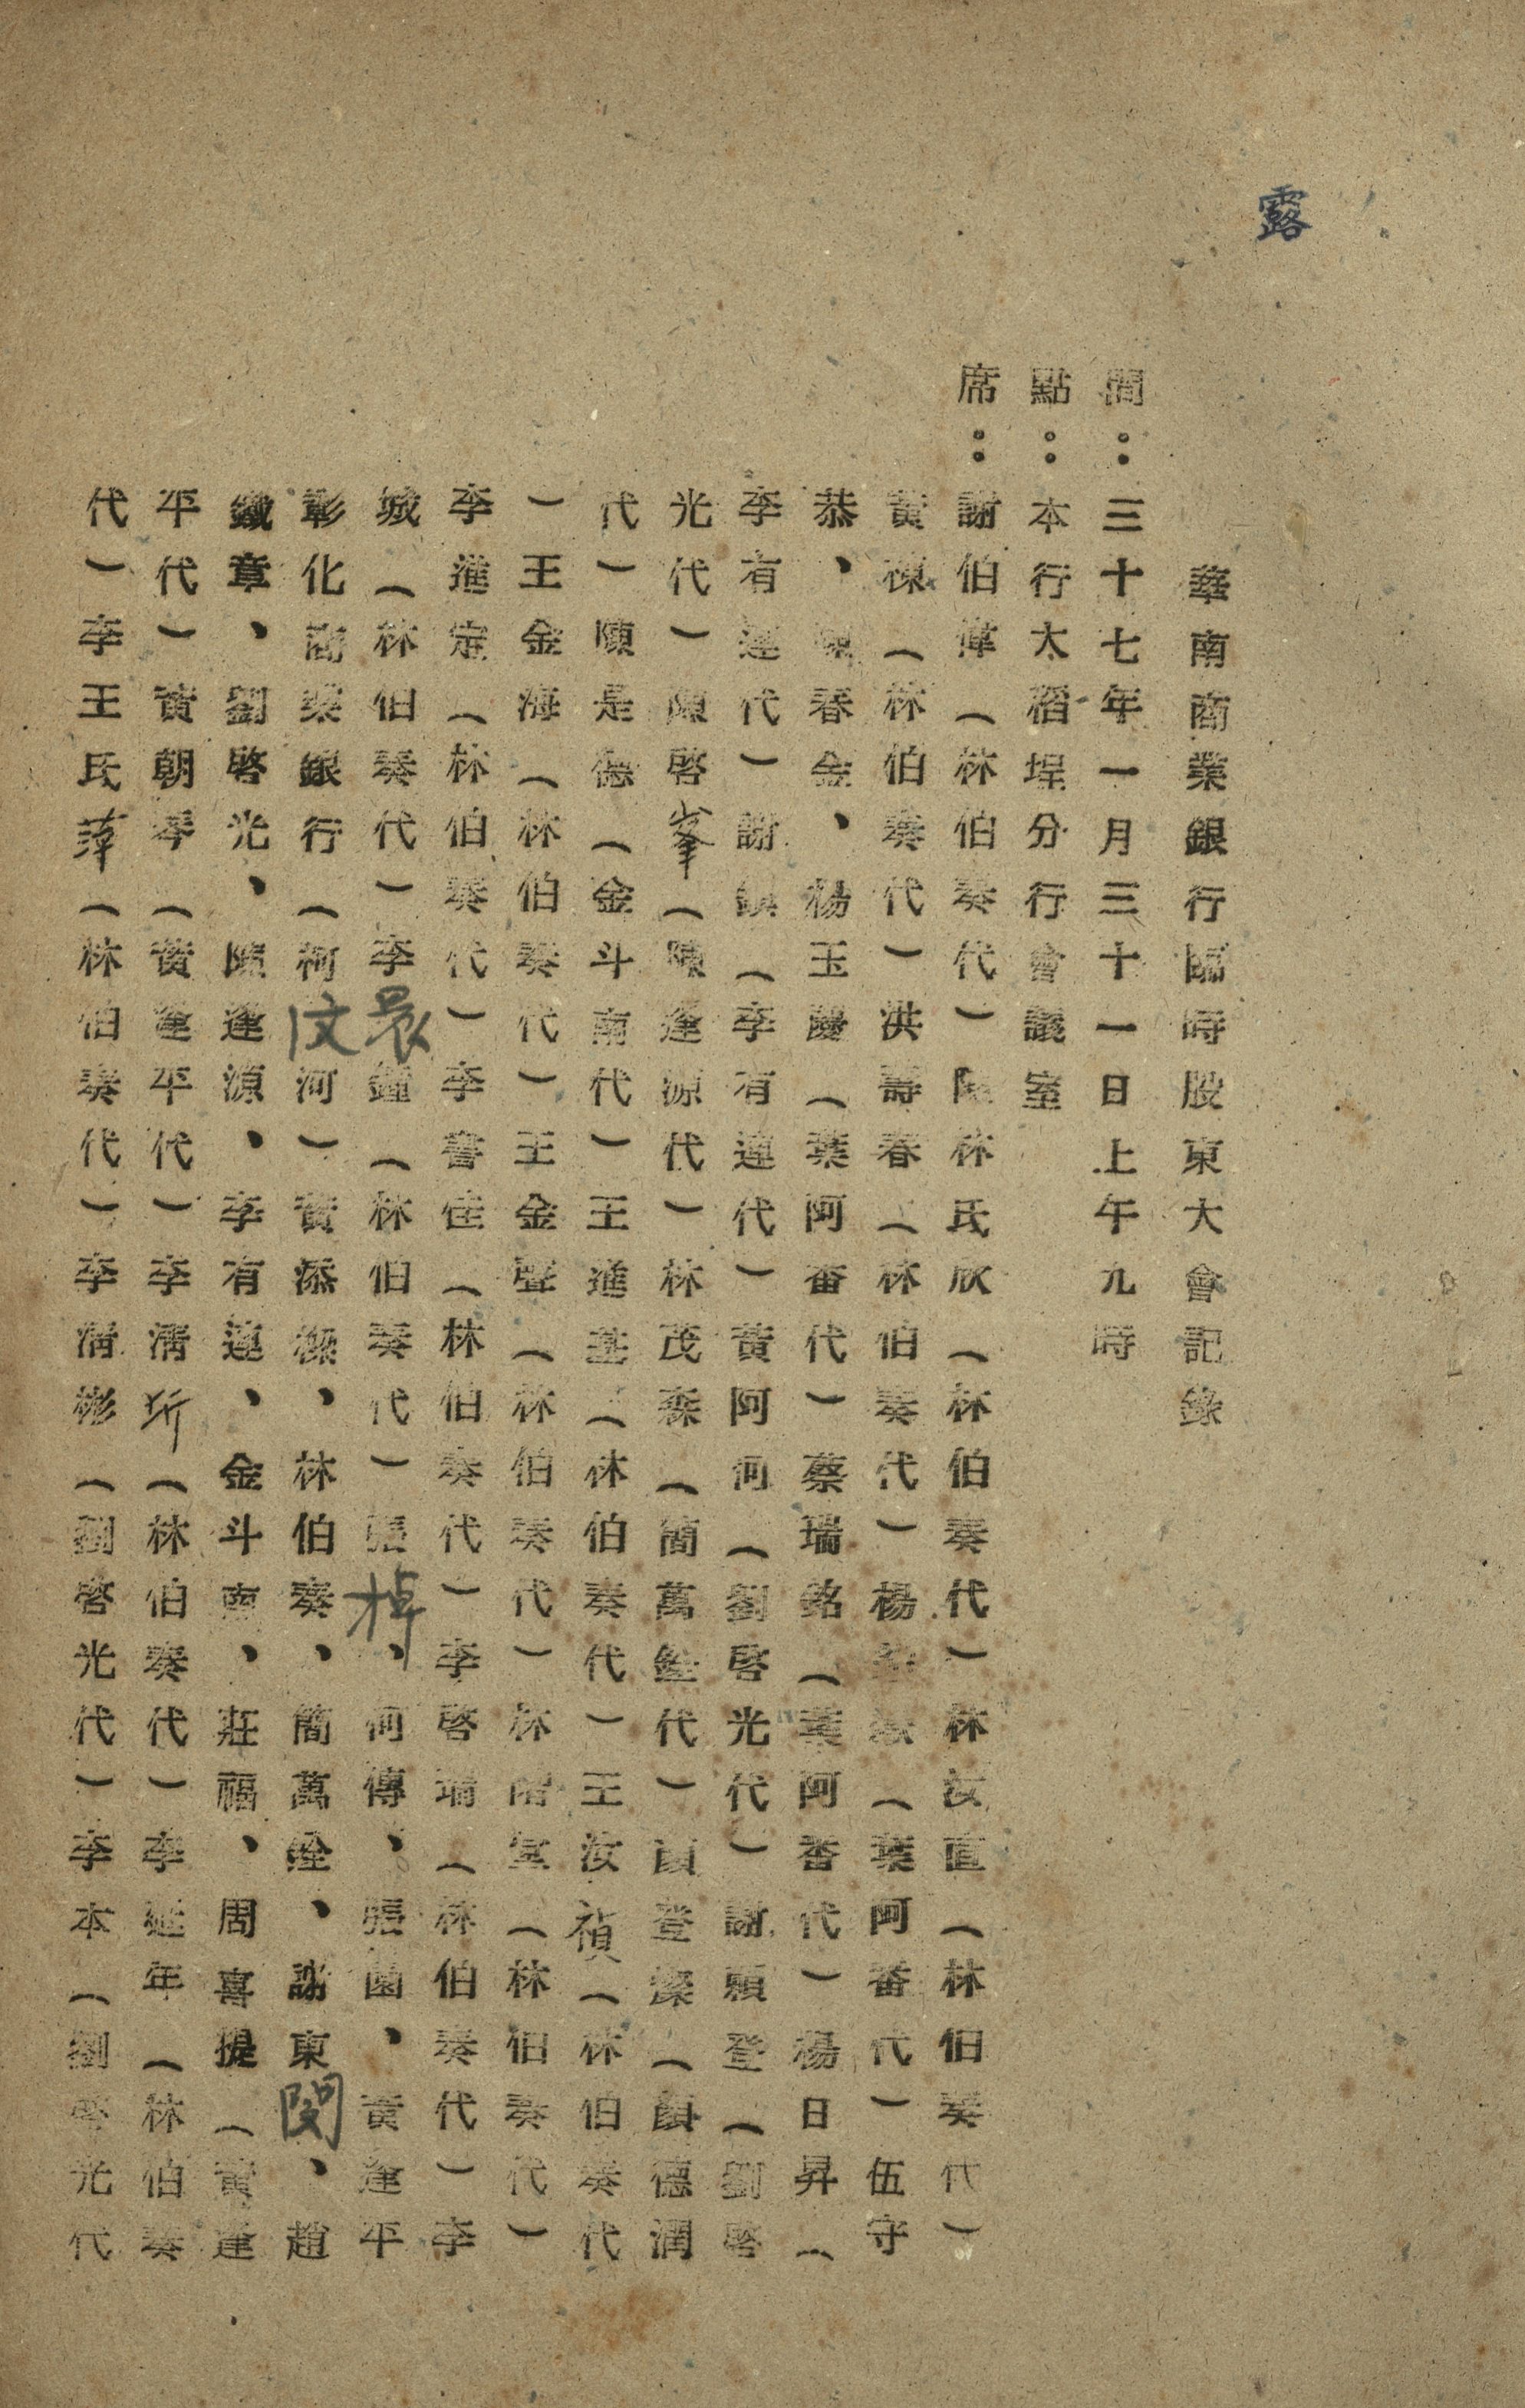 露
華南商業銀行臨時股東大會記錄
間：三十七年一月三十一日上午九時
點：本行太稻埕分行會議室
席：謝伯偉（林伯奏代）陳林氏欣（林伯奏代）林汝直（林伯奏代）
黃棟（林伯奏代）洪壽春（林伯奏代）楊（葉阿番代）伍守
恭、陳春金、楊玉慶（葉阿番代）蔡瑞銘（葉阿番代）楊日昇（
李有連代）謝鎮（李有連代）黃阿河（劉啓光代）謝賴登（劉啓
光代）陳啓峯（陳逢源代）林茂森（簡萬銓代）顏登燦（顏德潤
代）陳是德（金斗南代）王進基（林伯奏代）王汝禎（林伯奏代
）王金海（林伯奏代）王金聲（林伯奏代）林階堂（林伯奏代）
李進定（林伯奏代）李書佳（林伯奏代）李啓瑞（林伯奏代）李
城（林伯奏代）李晨鐘（林伯奏代）張棹、何傳、張園、黃逢平
彰化商業銀行（柯汶河）黃添樑、林伯奏、簡萬銓、謝東閔、趙
鐵章、劉啓光、陳逢源、李有連、金斗南、莊福、周喜提（黃逢
平代）黃朝琴（黃逢平代）李清圻（林伯奏代）李延年（林伯奏
代）李王氏萍（林伯奏代）李清彬（劉啓光代）李本（劉啓光代